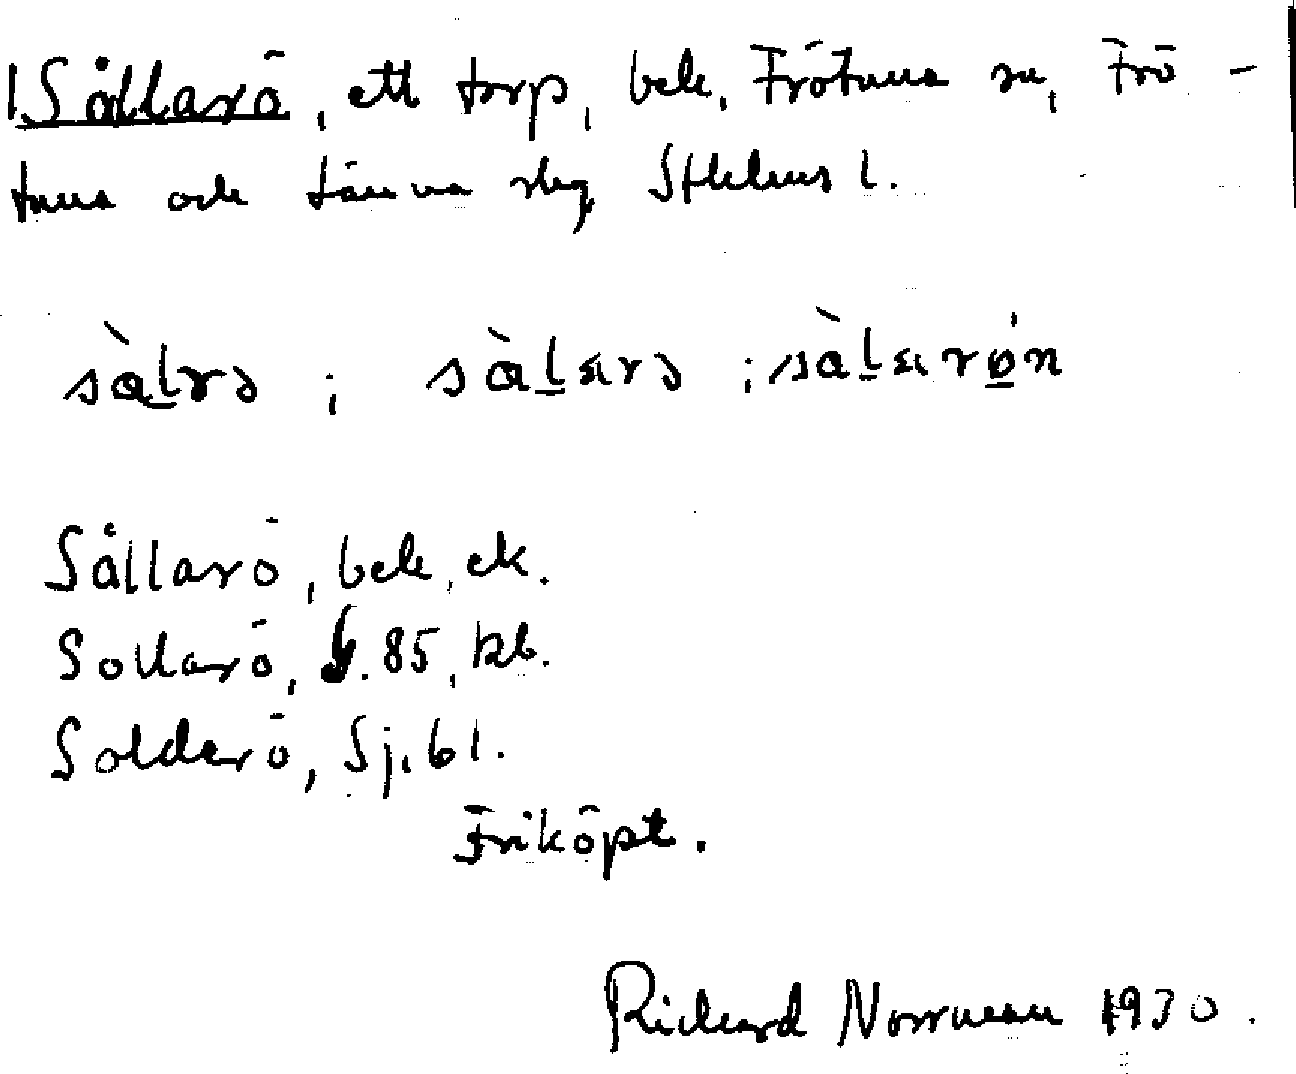 1. Sållarö, ett torp, bek, Frötuna sn, Frö-
tuna och Länna slg, Sthlms l.
sàlrɔ ; sàlarɔ ; sàlarøn
Sållarö, bek, ek.
Sollarö, J. 85, kb.
Solderö, Sj. 61.
Friköpt.
Richard Norrman 1930.